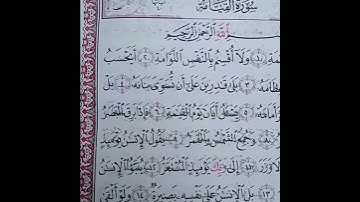 سُورَةُ الْقِيَامَةِ
اللهِ الرَّحْمٰنِ الرَّحِيمِ
وَلَا أُقْسِمُ بِالنَّفْسِ اللَّوَّامَةِ ٢ أَيَحْسَبُ
بَلٰى قَادِرِينَ عَلٰى أَنْ نُسَوِّيَ بَنَانَهُ ٤ بَلْ
أَمَامَهُ ٥ يَسْئَلُ أَيَّانَ يَوْمُ الْقِيٰمَةِ ٦ فَإِذَا بَرِقَ الْبَصَرُ
وَجُمِعَ الشَّمْسُ وَالْقَمَرُ ٩ يَقُولُ الْإِنْسَانُ يَوْمَئِذٍ
لَا وَزَرَ ١١ إِلٰى رَبِّكَ يَوْمَئِذٍ الْمُسْتَقَرُّ ١٢ يُنَبَّؤُا الْإِنْسَانُ
١٣ بَلِ الْإِنْسَانُ عَلٰى نَفْسِهِ بَصِيرَةٌ ١٤ وَلَوْ أَلْقٰى